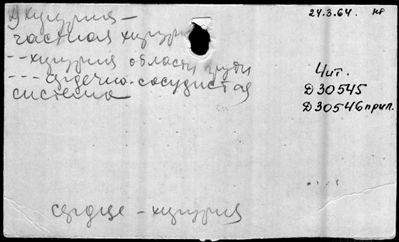 24.3.64. кв
9 хирургия –
частная хирур
-- хирургия области груди
--- сердечно-сосудистая
система
Чит.
Д30545
Д30546 прил.
сердце – хирургия